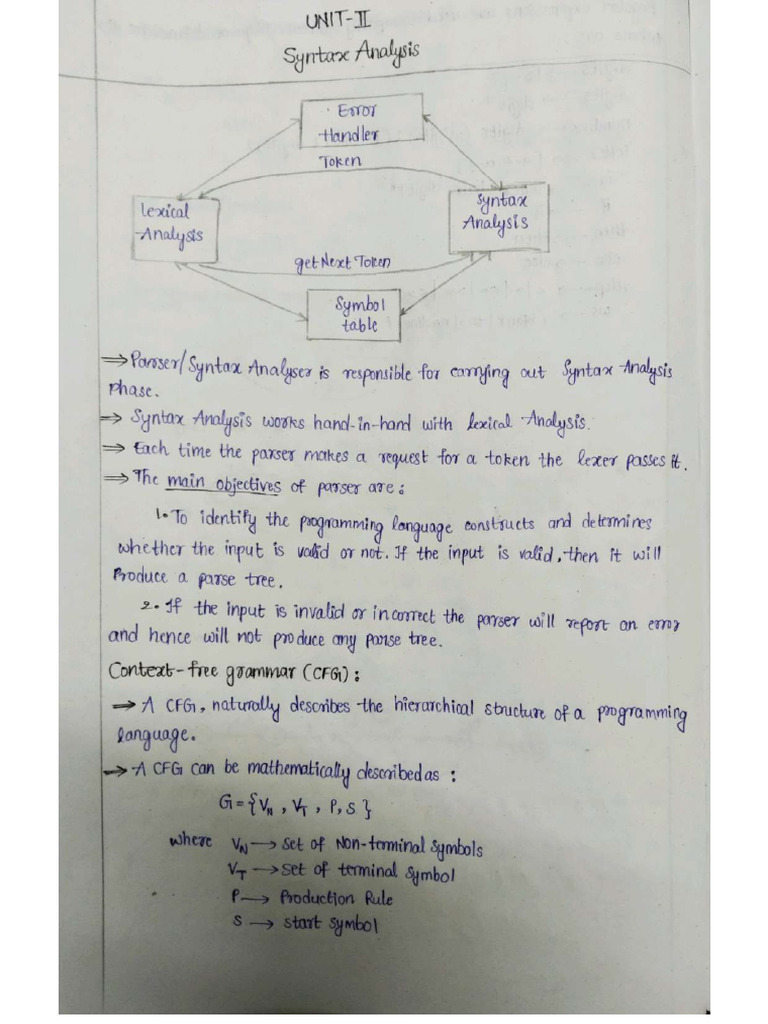 UNIT-II
Syntax Analysis
Error
Handler
Token
Lexical
Analysis
Syntax
Analysis
getNext Token
Symbol
table
⇒ Parser/Syntax Analyser is responsible for carrying out Syntax Analysis
phase.
⇒ Syntax Analysis works hand-in-hand with lexical Analysis.
⇒ Each time the parser makes a request for a token the lexer passes it.
⇒ The main objectives of parser are:
1. To identify the programming language constructs and determines
whether the input is valid or not. If the input is valid, then it will
Produce a parse tree.
2. If the input is invalid or incorrect the parser will report an error
and hence will not produce any parse tree.
Context-free grammar (CFG):
→ A CFG, naturally describes the hierarchical structure of a programming
language.
→ A CFG can be mathematically described as:
G = {V_N, V_T, P, S}
where V_N → Set of Non-terminal Symbols
V_T → Set of terminal Symbol
P → Production Rule
S → Start Symbol